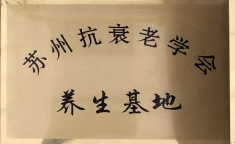 苏州抗衰老学会
养生基地